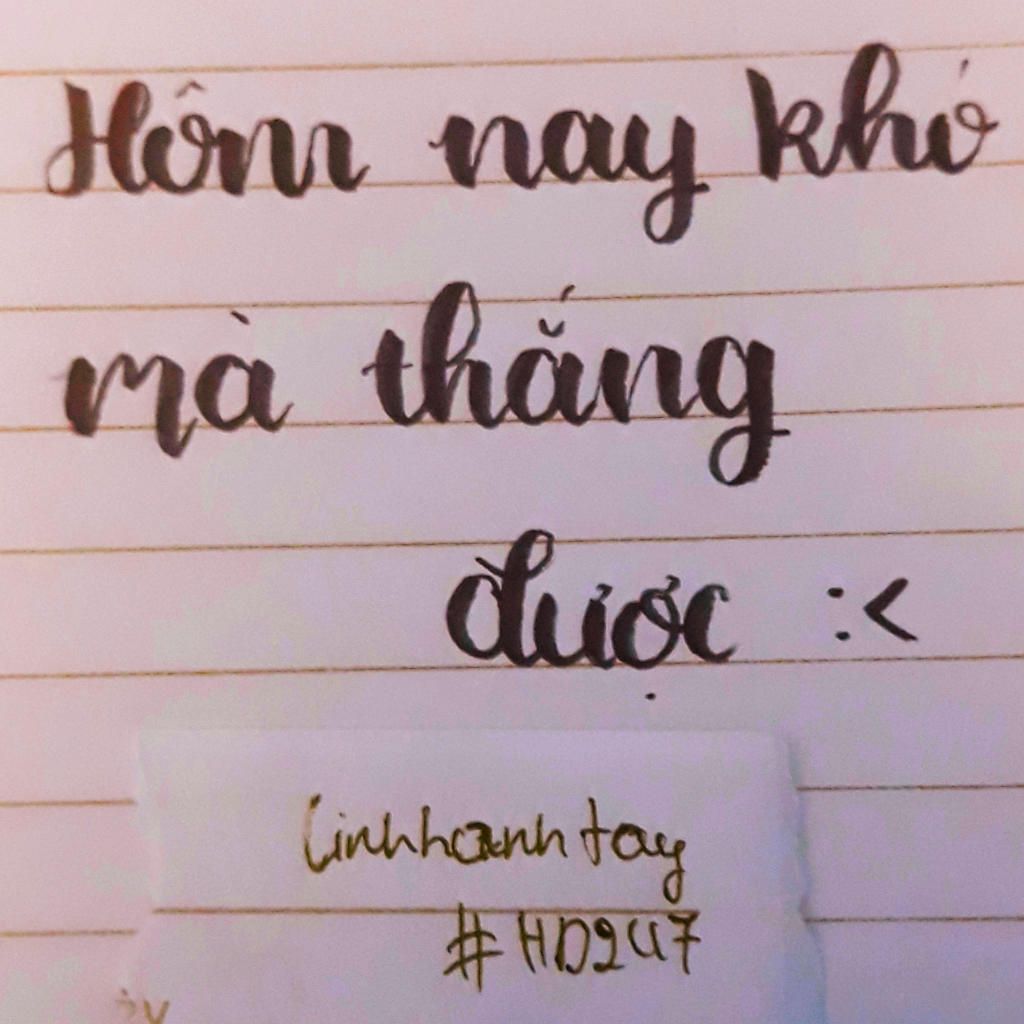 Hôm nay khó
mà thắng
được :<
Linhhanhtay
#HD247